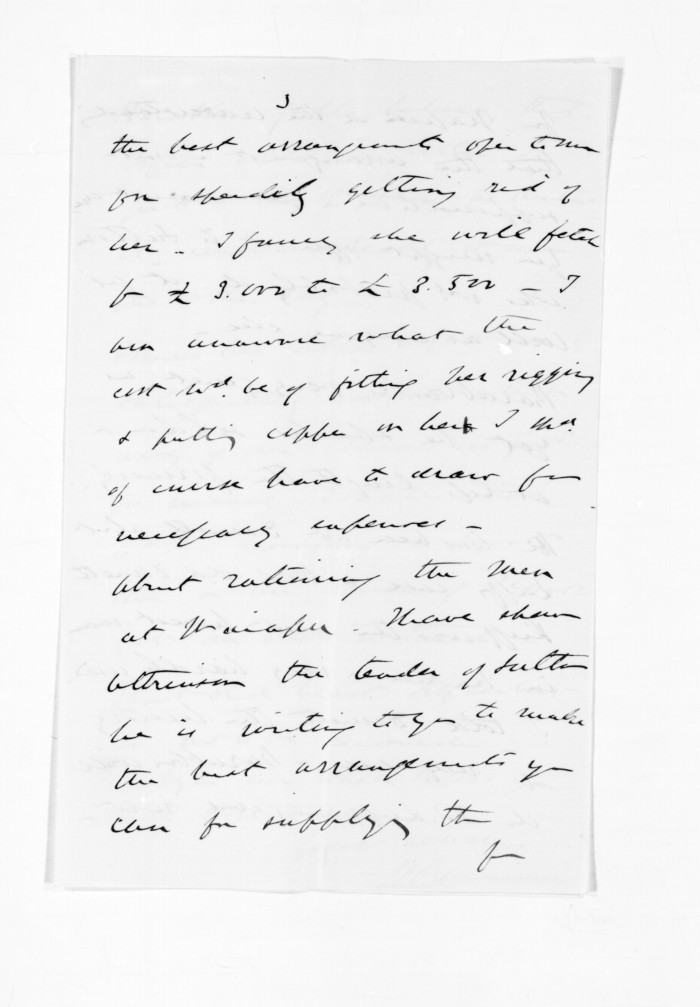 3
the best arrangements open to me
for speedily getting rid of
her - I fancy she will fetch
fr £ 3.000 to £ 3.500 - I
am unaware what the
cost wd. be of fitting her rigging
& putting copper on her I
of course have to draw for
necessary expenses -
about rationing the men
at Waiapu. I have shewn
Atkinson the tender of Sutton
he is writing to you to make
the best arrangements you
can for supplying th
fr